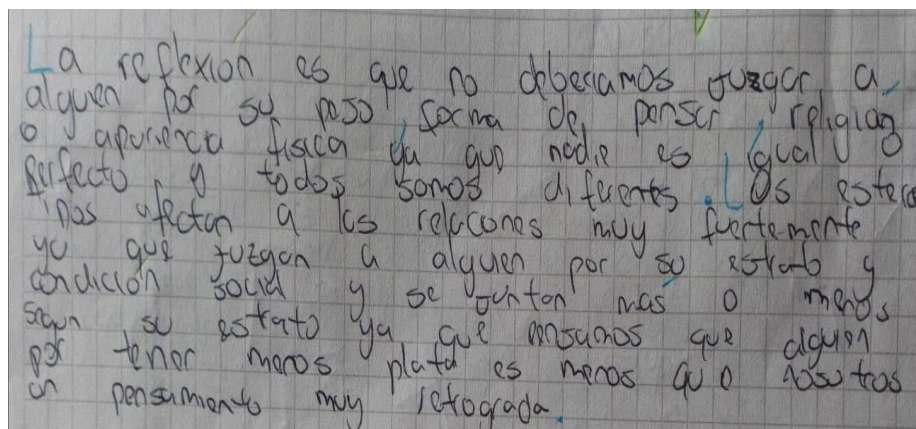 La reflexion es que no deberiamos juzgar a
alguen por su peso, forma de pensar, religiag
o apariencia fisica ya que nadie es igual o
perfecto y todos somos difuentes. Los estere
ipos afectan a las relacones muy fuertemente
ya que juzgan a alguien por su estrato y
condición social y se juntan mas o menos
segun su estrato ya que pensamos que alguien
por tener menos plata es menos que nosotros
un pensamiento muy retrograda.